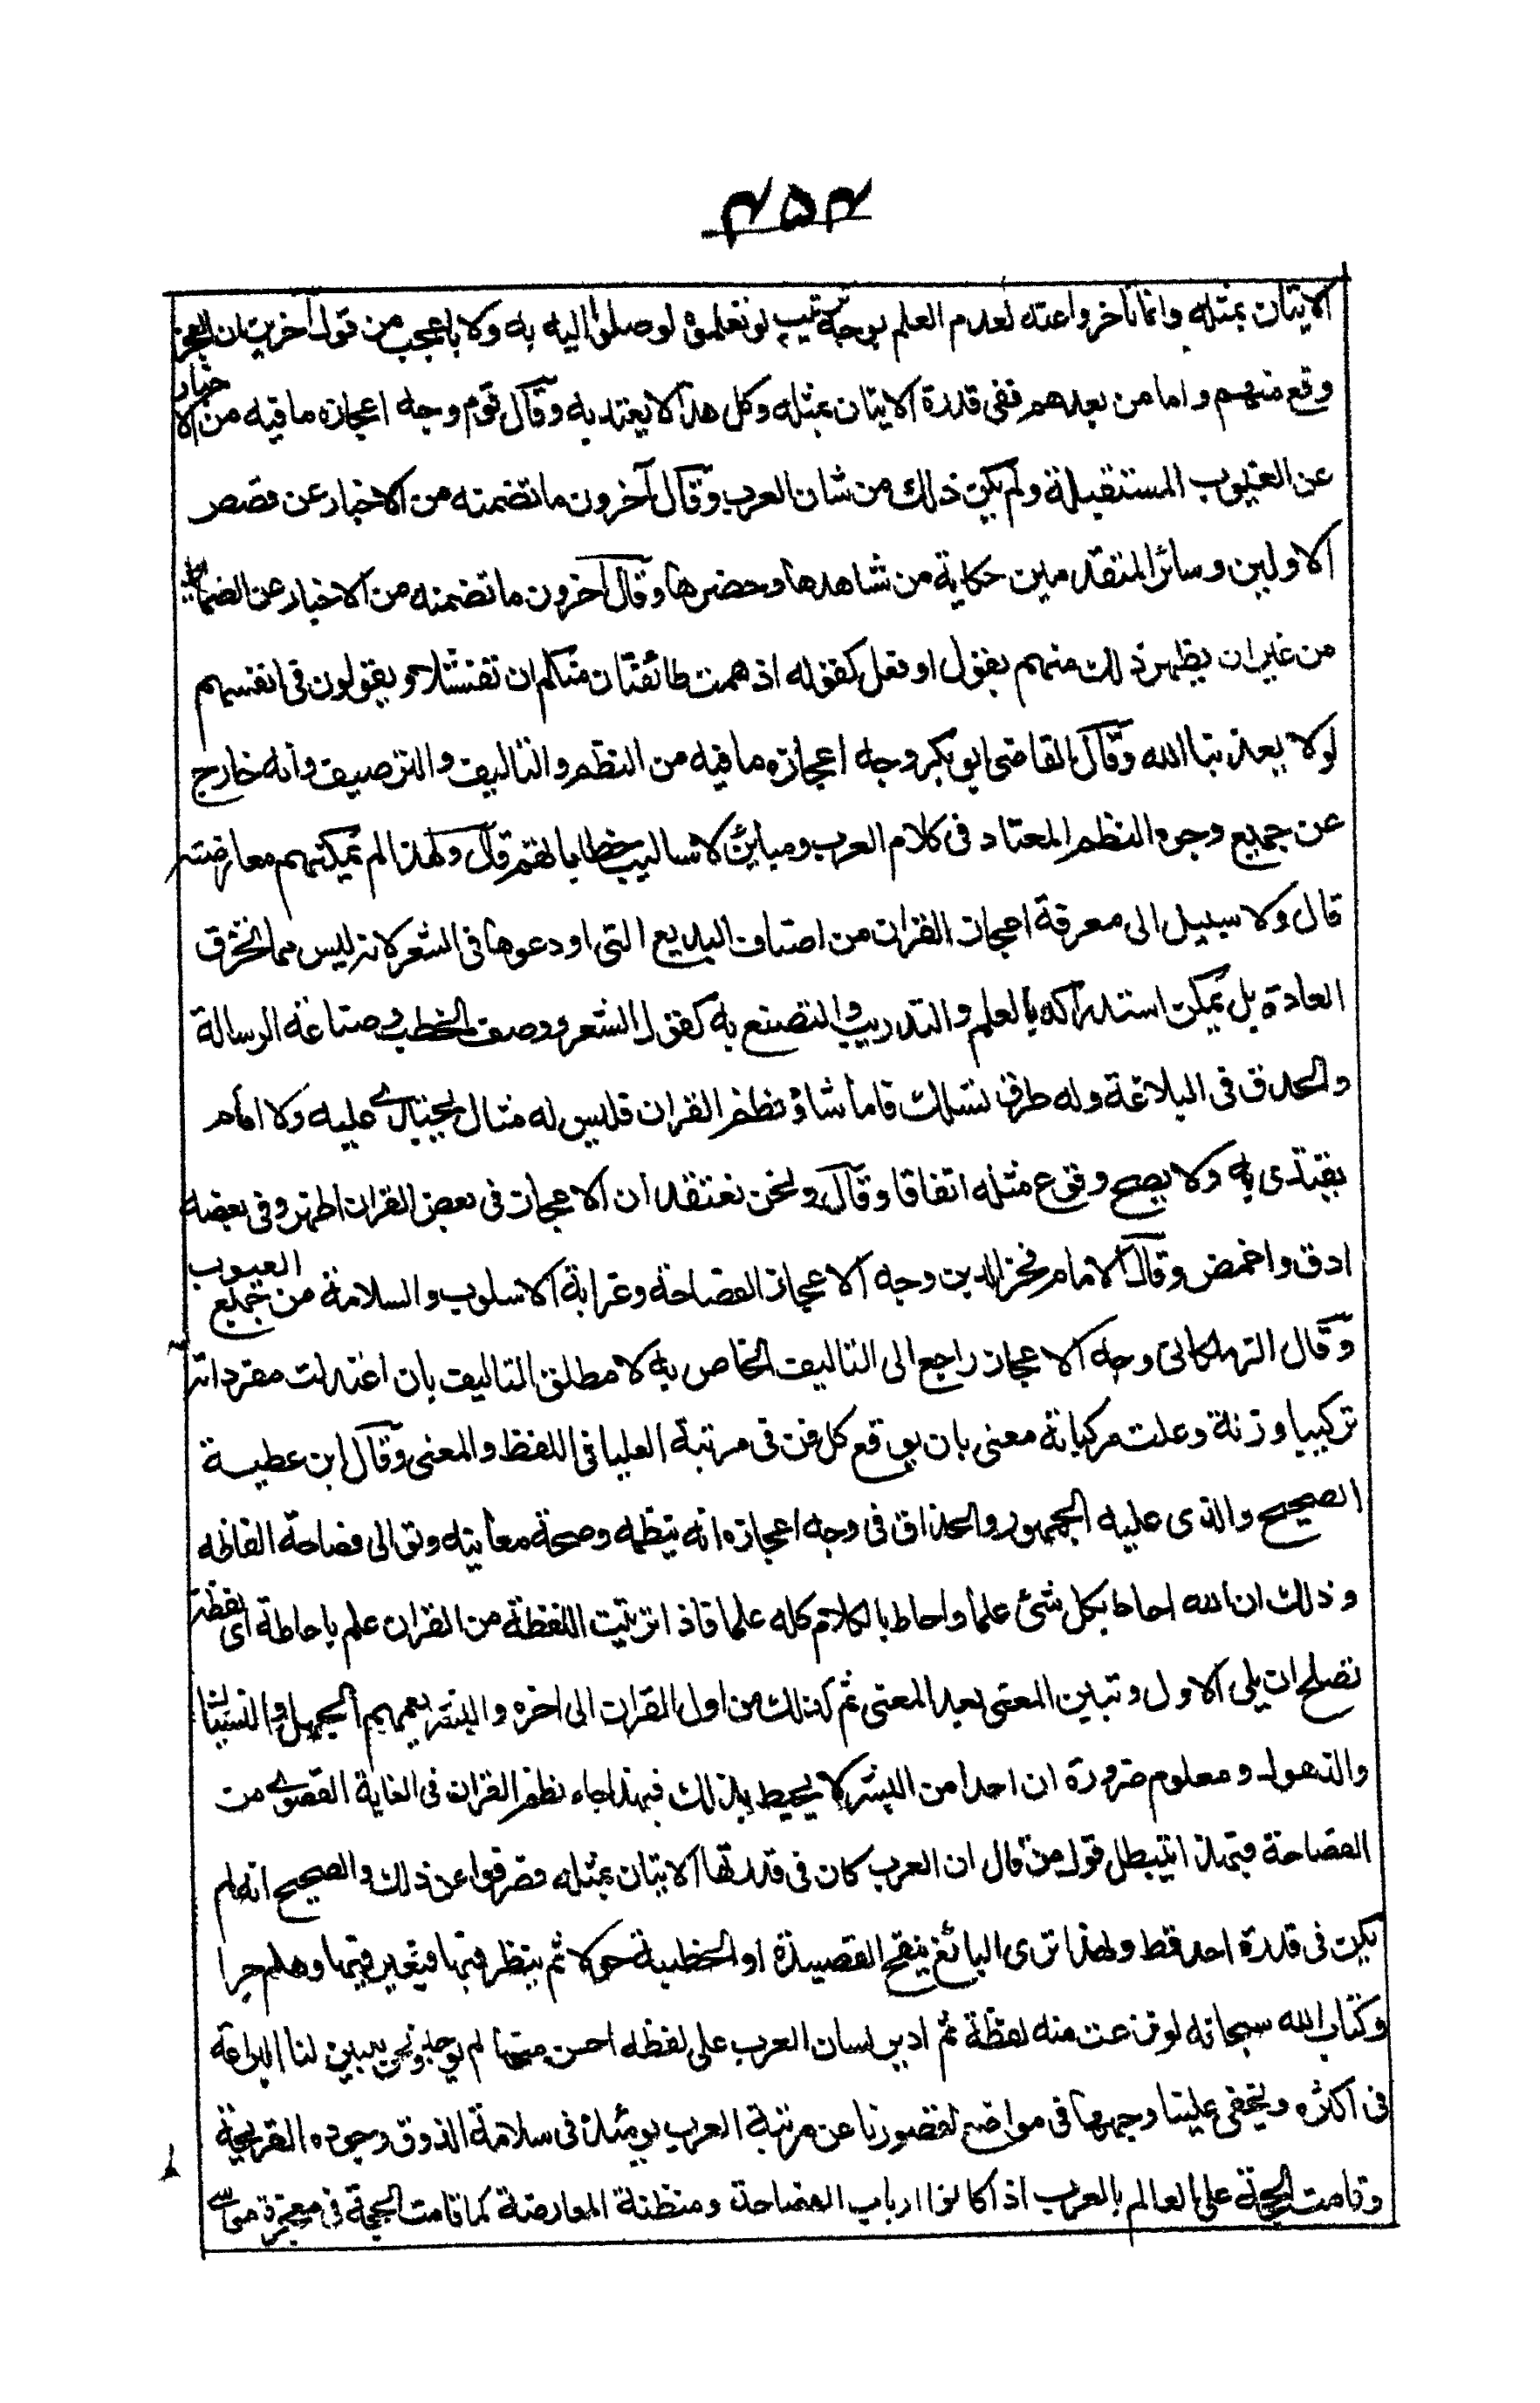 ۴۵۴
الاتيان بمثله وانما تأخروا عنه لعدم العلم بوجه ترتيب لو تعلموه لوصلوا اليه به ولا باعجب من قول آخرين ان العجز
وقع منهم واما من بعدهم ففى قدرة الاتيان بمثله وكل هذا لا يعتد به وقال قوم وجه اعجازه ما فيه من الاخبار
عن الغيوب المستقبلة ولم يكن ذلك من شان العرب وقال آخرون ما تضمنه من الاخبار عن قصص
الاولين وسائر المتقدمين حكاية من شاهدها وحضرها وقال آخرون ما تضمنه من الاخبار عن الضمائر
من غير ان يظهر ذلك منهم بقول او فعل كقوله اذ همت طائفتان منكم ان تفشلا ويقولون فى انفسهم
لولا يعذبنا الله وقال القاضى ابو بكر وجه اعجازه ما فيه من النظم والتاليف والترصيف وانه خارج
عن جميع وجوه النظم المعتاد فى كلام العرب ومباين لاساليب خطاباتهم قال ولهذا لم يمكنهم معارضته
قال ولا سبيل الى معرفة اعجاز القران من اصناف البديع التى اودعوها فى الشعر لانه ليس مما يخرق
العادة بل يمكن استدراكه بالعلم والتدريب والتصنع به كقول الشعر ووصف الخطب وصناعة الرسالة
والحذق فى البلاغة وله طرق تسلك فاما شاؤ نظم القران فليس له مثال يحتذى عليه ولا امام
يقتدى به ولا يصح وقوع مثله اتفاقا وقال ونحن نعتقد ان الاعجاز فى بعض القران اظهر وفى بعضه
ادق واغمض وقال الامام فخر الدين وجه الاعجاز الفصاحة وغرابة الاسلوب والسلامة من جميع العيوب
وقال الزملكانى وجه الاعجاز راجع الى التاليف الخاص به لا مطلق التاليف بان اعتدلت مفرداته
تركيبا وزنة وعلت مركباته معنى بان يوقع كل فن فى مرتبة العليا فى اللفظ والمعنى وقال ابن عطية
الصحيح والذى عليه الجمهور والحذاق فى وجه اعجازه انه بنظمه وصحة معانيه وتوالى فصاحة الفاظه
وذلك ان الله احاط بكل شئ علما واحاط بالكلام كله علما فاذا ترتيت اللفظة من القران علم باحاطة اى لفظة
تصلح ان يلى الاول وتبين المعنى بعد المعنى ثم كذلك من اول القران الى اخره والبشر يعمهم الجهل والنسيان
والذهول ومعلوم ضرورة ان احدا من البشر لا يحيط بذلك فبهذا جاء نظم القران فى الغاية القصوى من
الفصاحة فبهذا يبطل قول من قال ان العرب كان فى قدرتها الاتيان بمثله فصرفوا عن ذلك والصحيح انه لم
يكن فى قدرة احد قط ولهذا ترى البائغ ينقح القصيدة او الخطبة حولا ثم ينظر فيها فيغير فيها وهلم جرا
وكتاب الله سبحانه لو نزعت منه لفظة ثم ادير لسان العرب على لفظه احسن منها لم يوجد ونحن يبين لنا البراعة
فى اكثره ويخفى علينا وجهها فى مواضع لقصورنا عن مرتبة العرب يومئذ فى سلامة الذوق وجوده القريحة
وقامت الحجة على العالم بالعرب اذا كانوا ارباب الفصاحة ومنظنة المعارضة كما قامت الحجة فى معجزة موسى